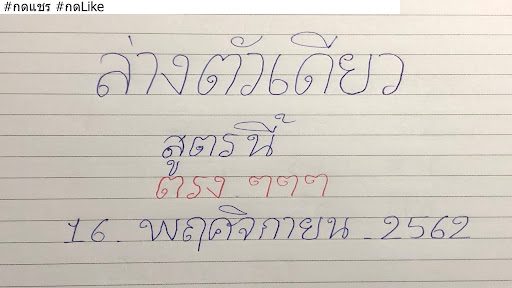 #กดแชร #กดLike
ล่างตัวเดียว
สูตรนี้
ตรง ๆๆๆ
16. พฤศจิกายน. 2562